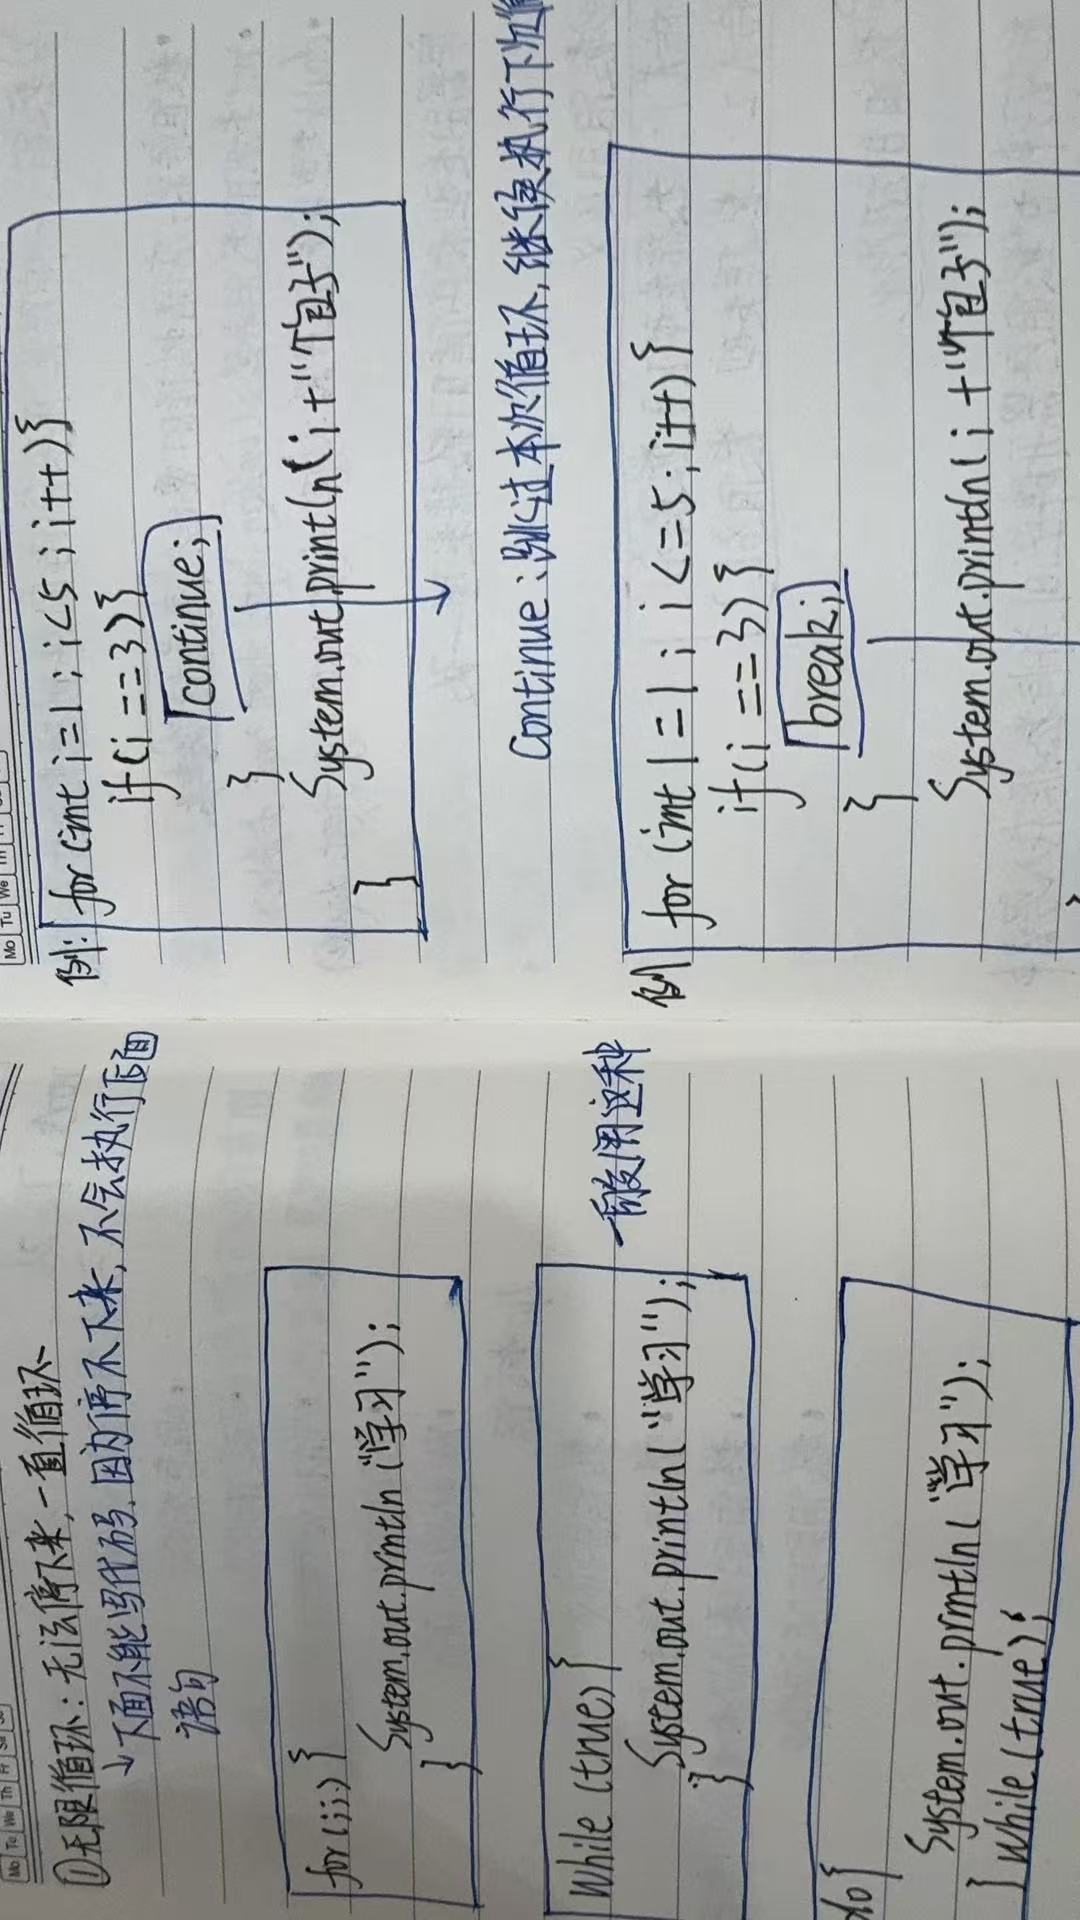 Mo Tu We Th Fr Sa Su
①无限循环:无法停下来,一直循环
↓下面不能写代码,因为停不下来,不会执行后面
语句
for(;;){
System.out.println("学习");
}
While (true){
System.out.println("学习");
}
一般用这种
do{
System.out.println("学习");
} while(true);
Mo Tu We Th Fr
例:
for(int i=1;i<5;i++){
if(i==3){
continue;
}
System.out.println(i+"个包子");
}
Continue:跳过本次循环,继续执行下次
例
for(int i=1;i<=5;i++){
if(i==3){
break;
}
System.out.println(i+"个包子");